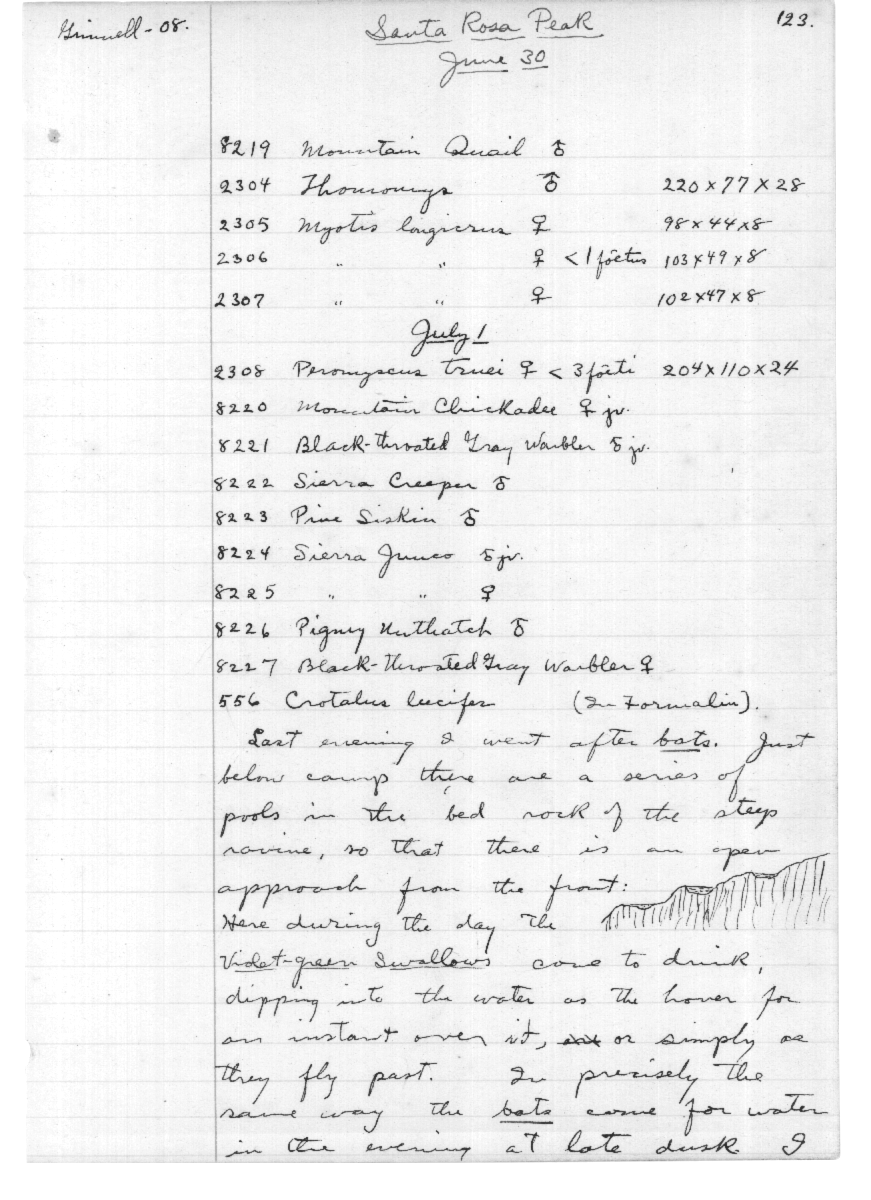 Grinnell - 08.
Santa Rosa Peak
123.
June 30
8219 Mountain Quail ♂
2304 Thomomys ♂ 220 x 77 x 28
2305 Myotis longicrus ♀ 98 x 44 x 8
2306 " " ♀ < 1 foetus 103 x 49 x 8
2307 " " ♀ 102 x 47 x 8
July 1
2308 Peromyscus truei ♀ < 3 foeti 204 x 110 x 24
8220 Mountain Chickadee ♀ jv.
8221 Black-throated Gray Warbler ♂ jv.
8222 Sierra Creeper ♂
8223 Pine Siskin ♂
8224 Sierra Junco ♂ jv.
8225 " " ♀
8226 Pigmy Nuthatch ♂
8227 Black-throated Gray Warbler ♀
556 Crotalus lucifer (In Formalin).
Last evening I went after bats. Just
below camp there are a series of
pools in the bed rock of the steep
ravine, so that there is an open
approach from the front:
Here during the day the
Violet-green Swallows come to drink,
dipping into the water as the hover for
an instant over it, or simply as
they fly past. In precisely the
same way the bats come for water
in the evening at late dusk I